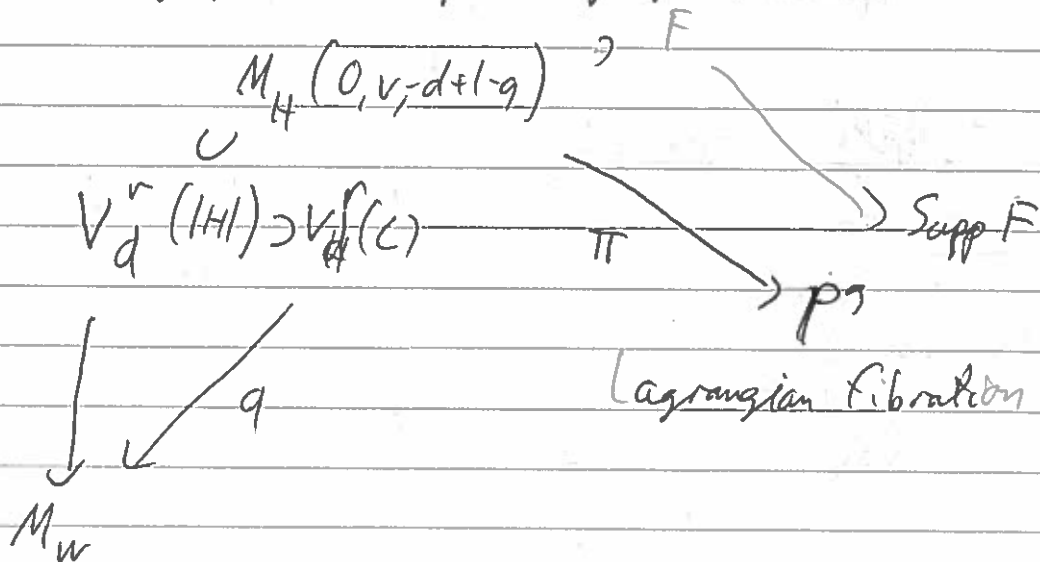 , F
M_H (0, v, -d+1-g)
∪
V_d^r (|H|) ⊃ V_d^r (C) π Supp F
P^g
q Lagrangian fibration
M_w